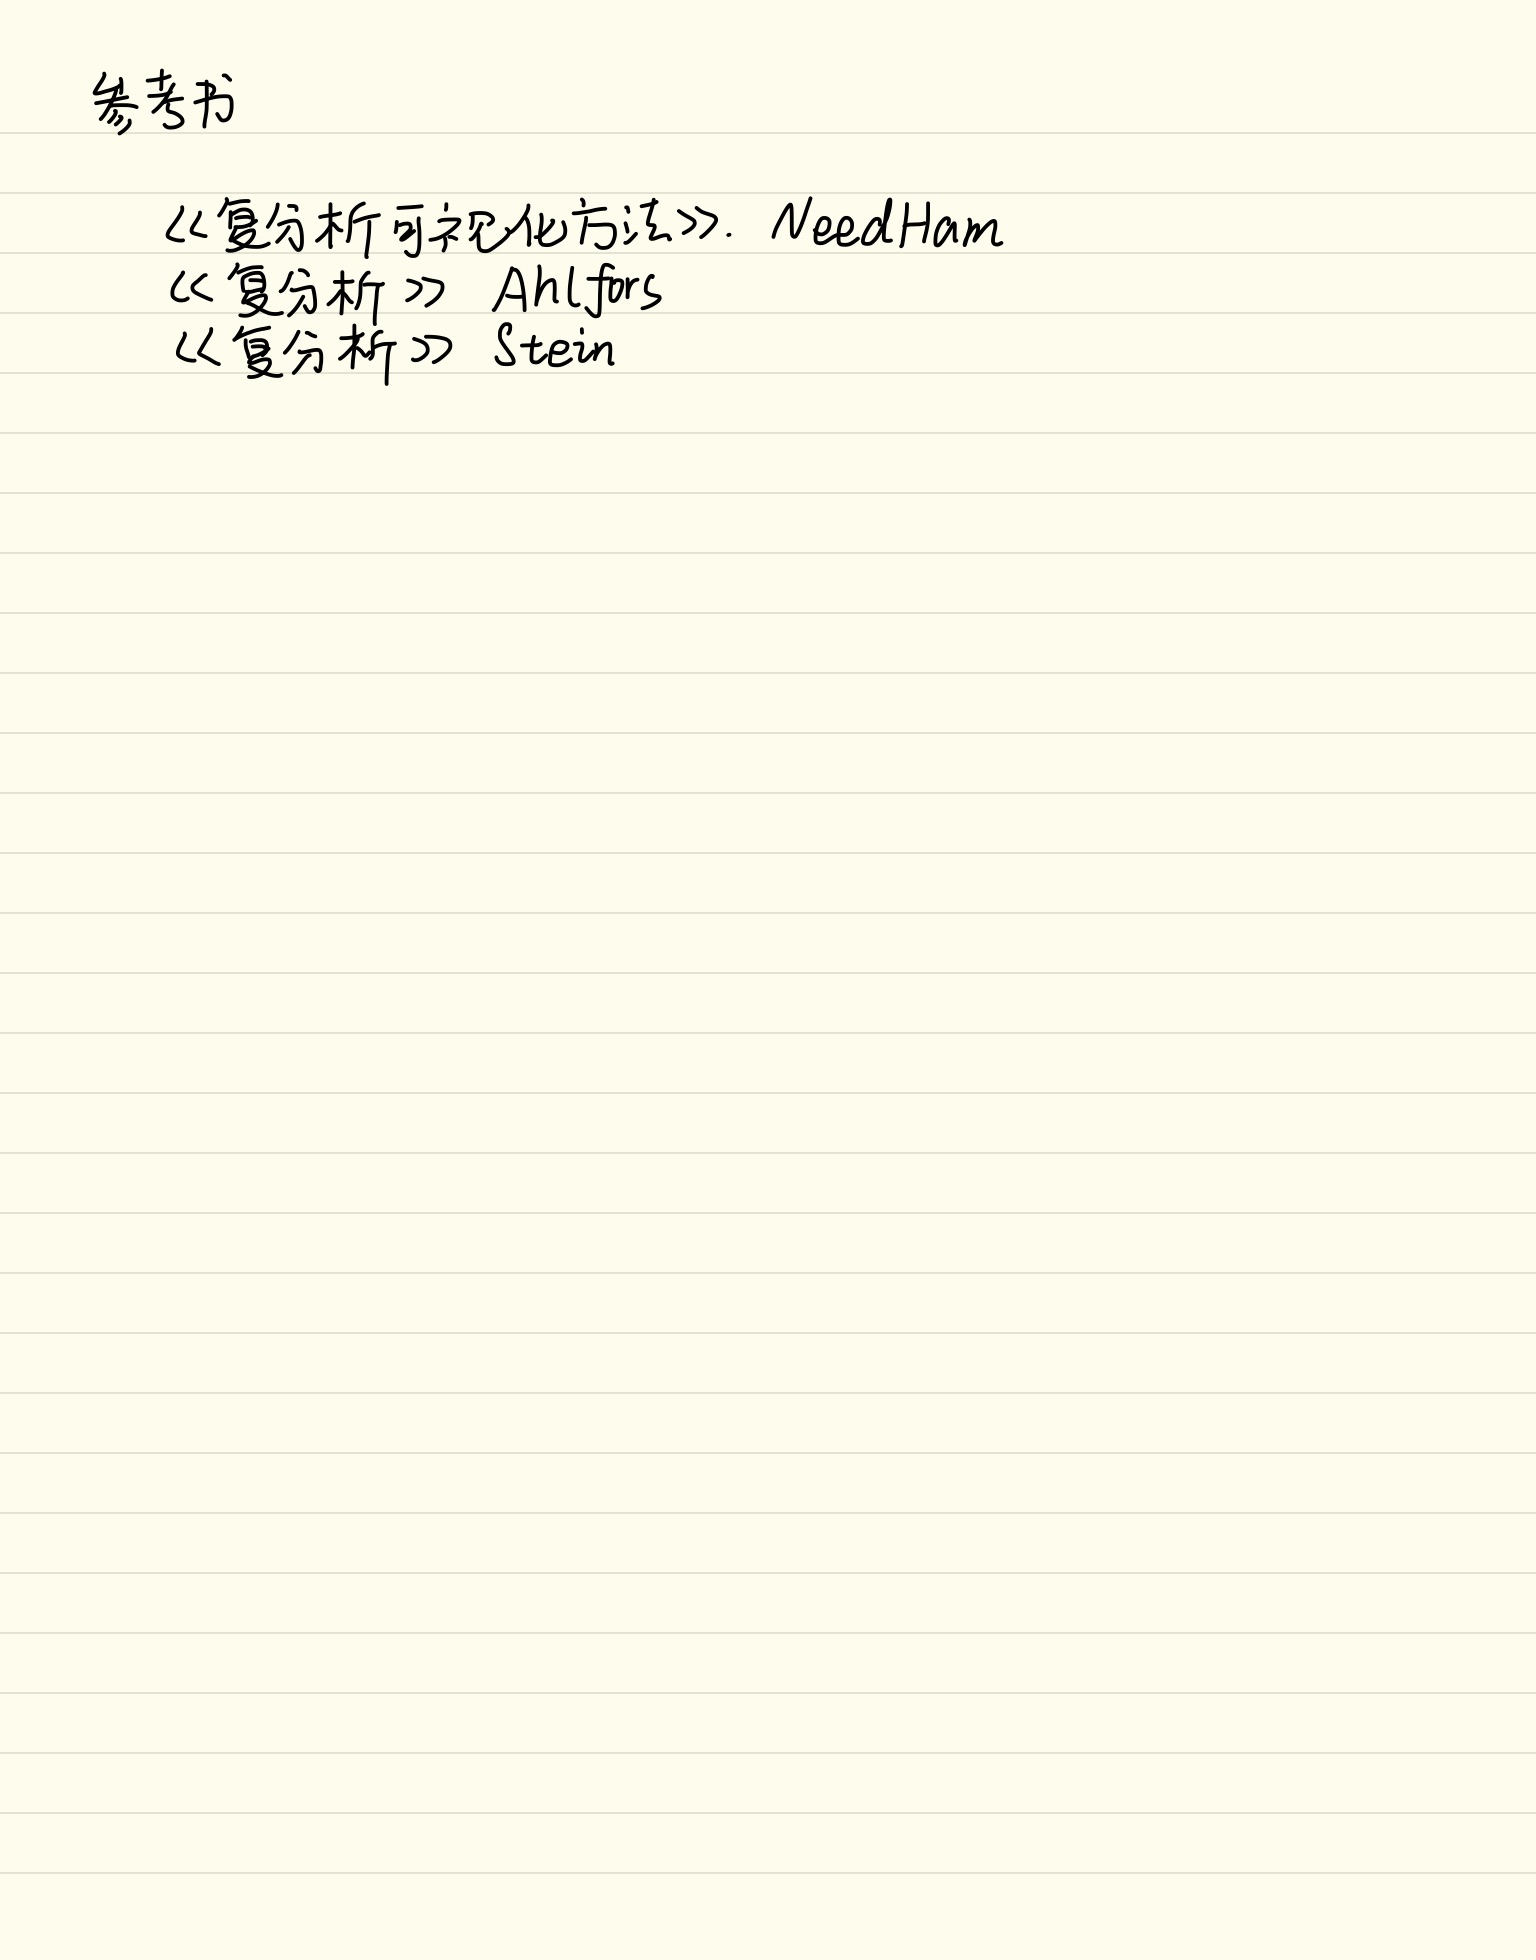 参考书
<<复分析可视化方法>>. NeedHam
<<复分析>> Ahlfors
<<复分析>> Stein